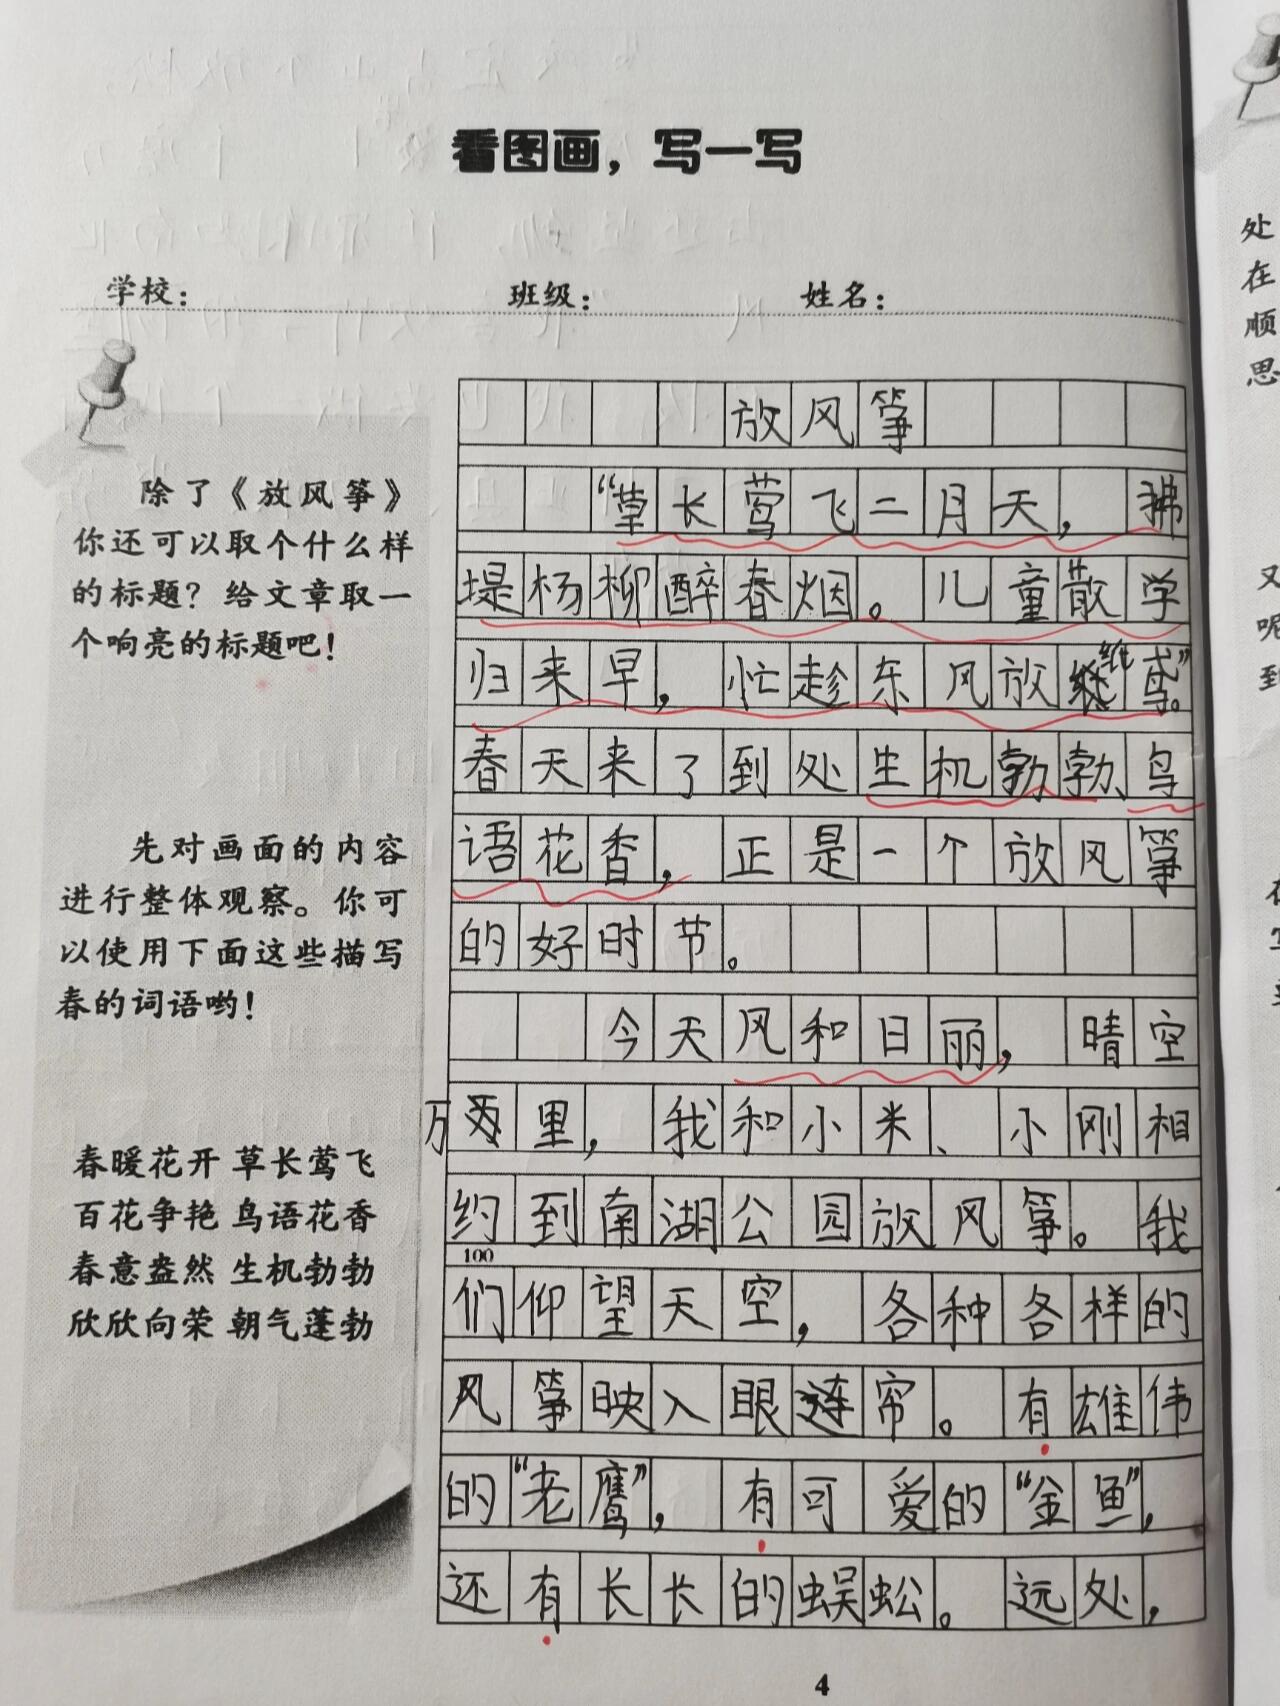 看图画，写一写
学校：
班级：
姓名：
除了《放风筝》
你还可以取个什么样
的标题？给文章取一
个响亮的标题吧！
先对画面的内容
进行整体观察。你可
以使用下面这些描写
春的词语哟！
春暖花开 草长莺飞
百花争艳 鸟语花香
春意盎然 生机勃勃
欣欣向荣 朝气蓬勃
放风筝
“草长莺飞二月天，拂
堤杨柳醉春烟。儿童散学
归来早，忙趁东风放纸鸢”。
春天来了到处生机勃勃、鸟
语花香，正是一个放风筝
的好时节。
今天风和日丽，晴空
万里，我和小米、小刚相
约到南湖公园放风筝。我
100
们仰望天空，各种各样的
风筝映入眼帘。有雄伟
的“老鹰”，有可爱的“金鱼”，
还有长长的蜈蚣。远处，
4
处
在
顺
思
又
呢
到